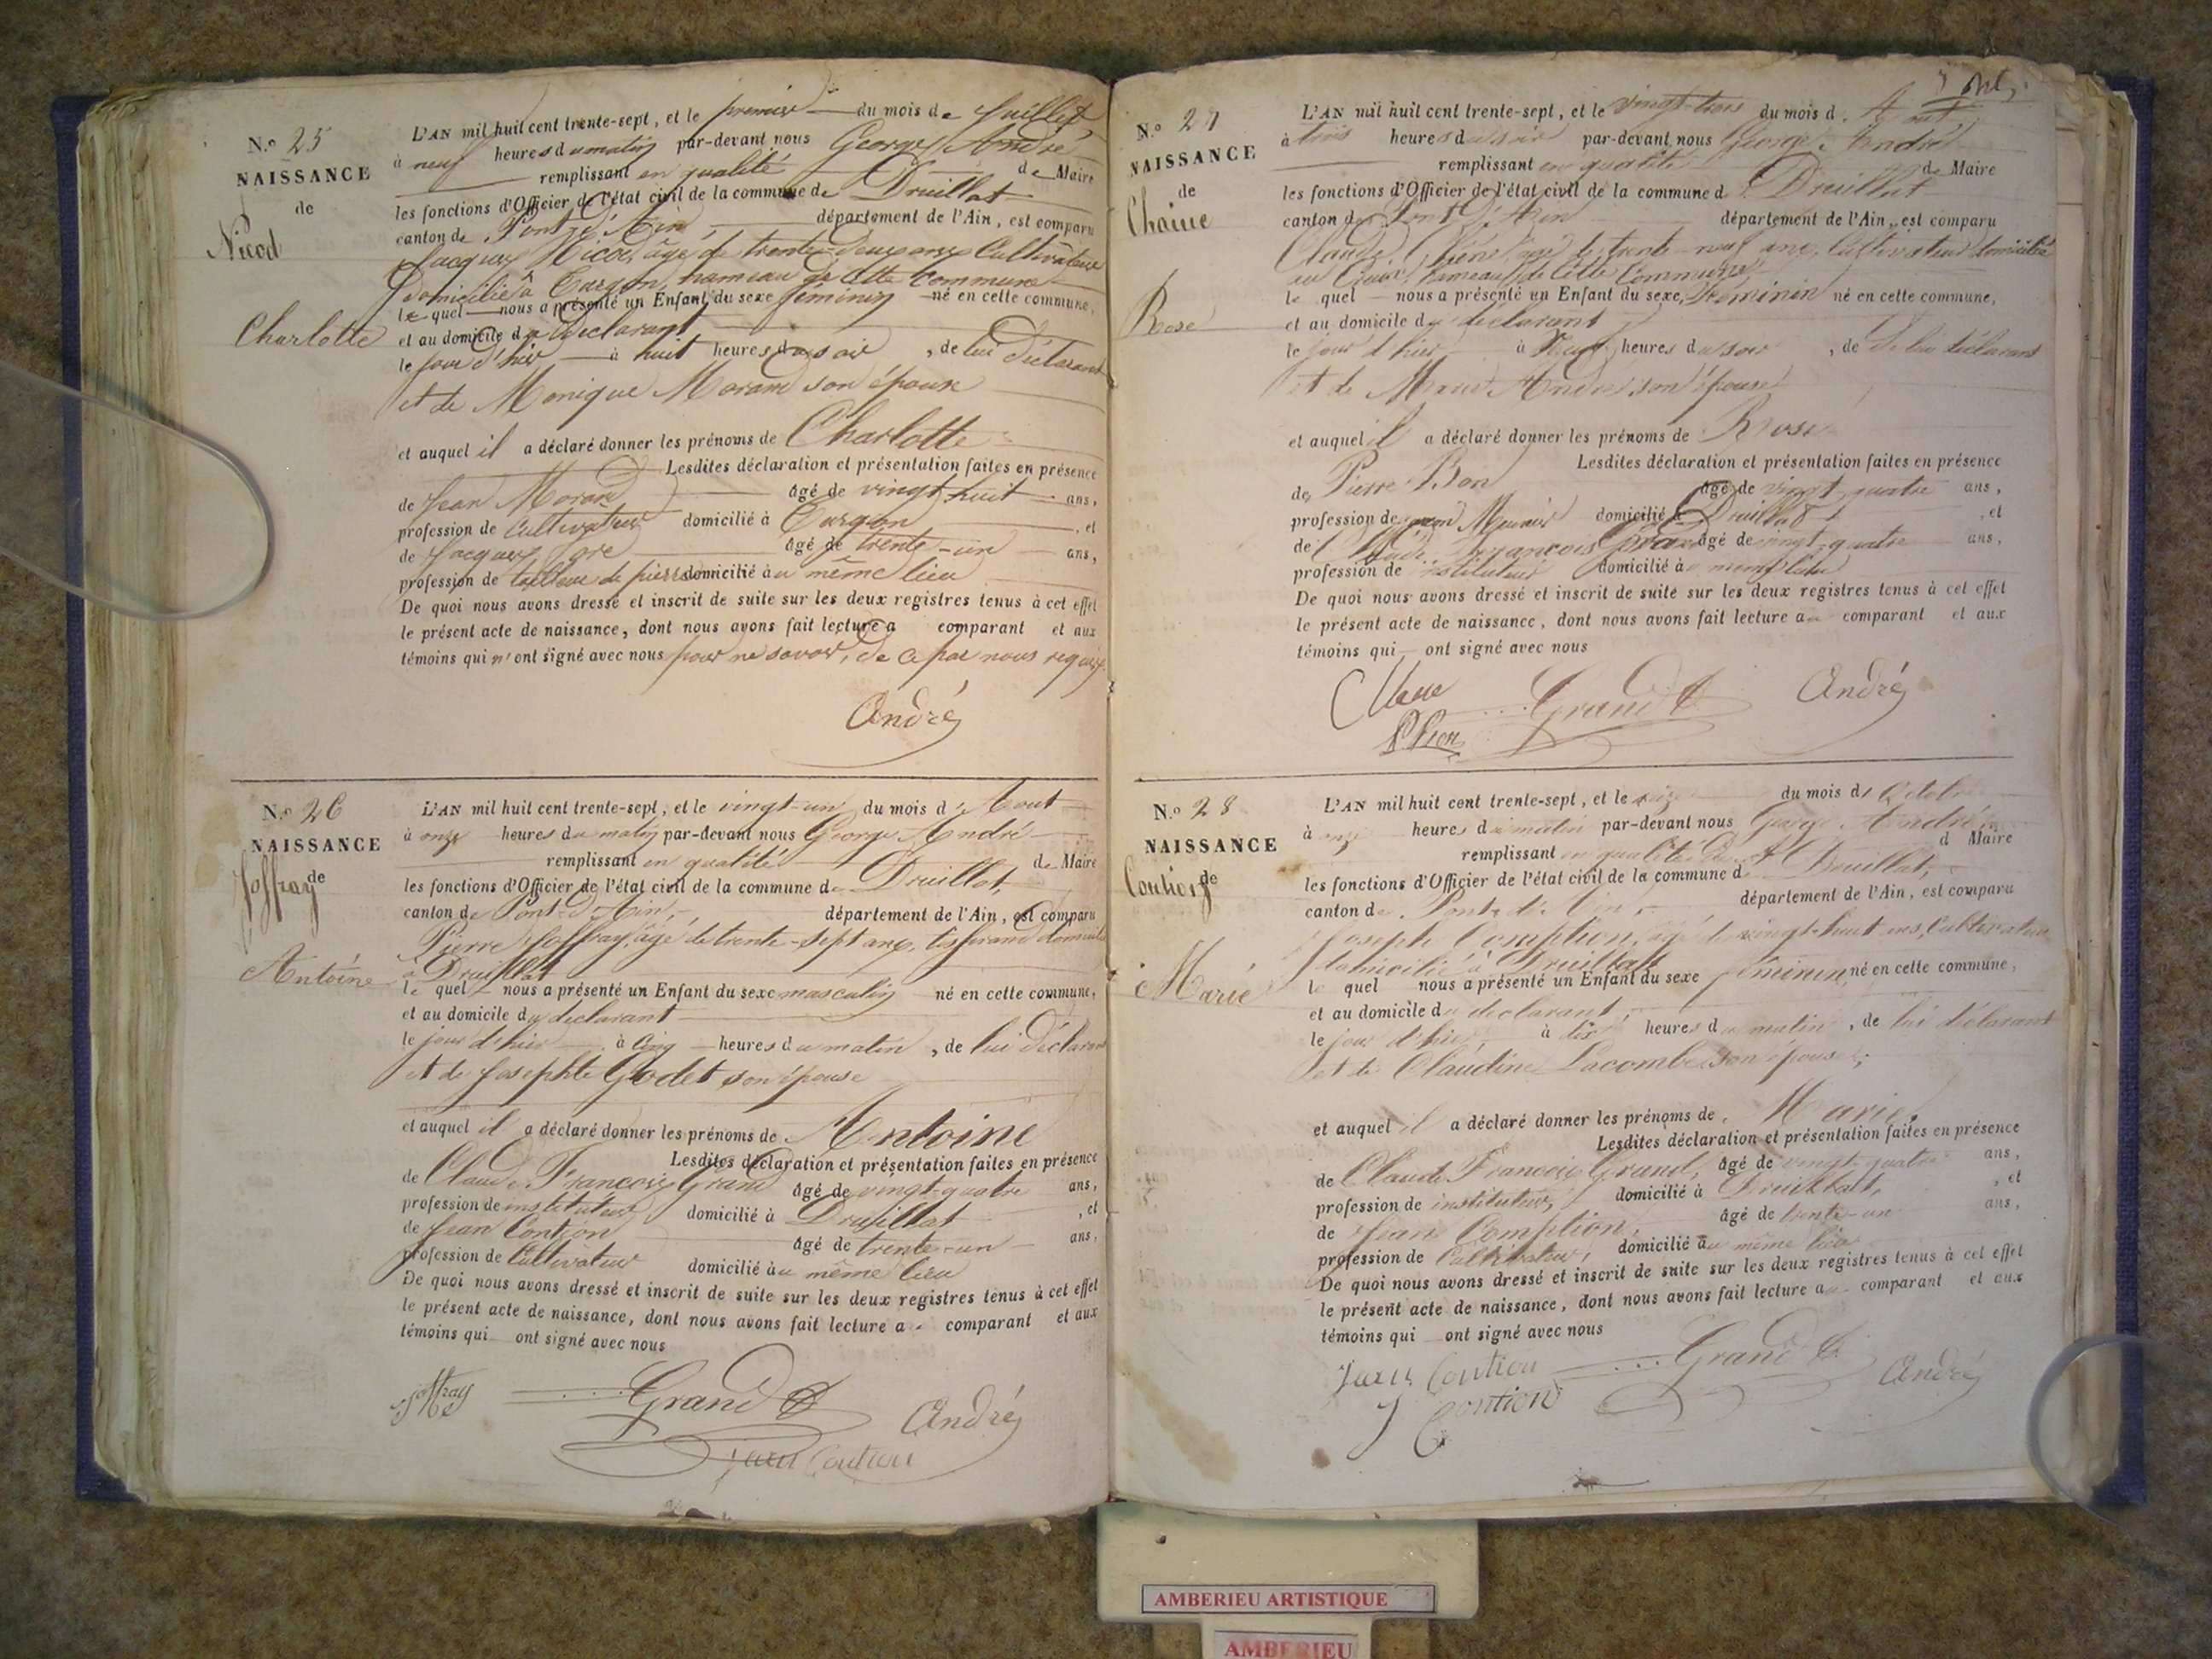 N.o 25
NAISSANCE
de
Nicod
Charlotte
L'AN mil huit cent trente-sept, et le premier du mois de Juillet
à neuf heures du matin par-devant nous George André
remplissant en qualité de Maire
les fonctions d'Officier de l'état civil de la commune de Druillat
canton de Pont-d'Ain, département de l'Ain, est comparu
Jacques Nicod, âgé de trente-deux ans Cultivateur
domicilié à Turgon, hameau de cette Commune
le quel nous a présenté un Enfant du sexe féminin né en cette commune,
et au domicile du Déclarant
le jour d'hier à huit heures du soir, de lui Déclarant
et de Monique Morand son épouse
et auquel il a déclaré donner les prénoms de Charlotte
Lesdites déclaration et présentation faites en présence
de Jean Morand âgé de vingt huit ans,
profession de Cultivateur domicilié à Turgon, et
de Jacques âgé de trente-un ans,
profession de tailleur de pierre domicilié au même lieu
De quoi nous avons dressé et inscrit de suite sur les deux registres tenus à cet effet
le présent acte de naissance, dont nous avons fait lecture a comparant et aux
témoins qui n'ont signé avec nous pour ne savoir, de ce par nous requis.
André
N.o 26
NAISSANCE
de
Joffray
Antoine
L'AN mil huit cent trente-sept, et le vingt-un du mois d'Aout
à onze heures du matin par-devant nous George André
remplissant en qualité de Maire
les fonctions d'Officier de l'état civil de la commune de Druillat,
canton de Pont-d'Ain, département de l'Ain, est comparu
Pierre Joffray, âgé de trente-sept ans, tisserand domicilié
à Druillat
le quel nous a présenté un Enfant du sexe masculin né en cette commune,
et au domicile du déclarant
le jour d'hier à cinq heures du matin, de lui Déclarant
et de Josephte Godet son épouse
et auquel il a déclaré donner les prénoms de Antoine
Lesdites déclaration et présentation faites en présence
de Claude François Grand âgé de vingt-quatre ans,
profession de instituteur domicilié à Druillat, et
de Jean Contion âgé de trente-un ans,
profession de Cultivateur domicilié au même lieu
De quoi nous avons dressé et inscrit de suite sur les deux registres tenus à cet effet
le présent acte de naissance, dont nous avons fait lecture a comparant et aux
témoins qui ont signé avec nous
Joffray Grand André
Jean Contion
N.o 27
NAISSANCE
de
Chaine
Rose
L'AN mil huit cent trente-sept, et le vingt-trois du mois d. Aout
à trois heures du soir par-devant nous George André
remplissant en qualité de Maire
les fonctions d'Officier de l'état civil de la commune de Druillat
canton de Pont-d'Ain département de l'Ain, est comparu
Claude âgé de trente-neuf ans, Cultivateur domicilié
au hameau de cette Commune,
le quel nous a présenté un Enfant du sexe féminin né en cette commune,
et au domicile du déclarant
le jour d'hier à Neuf heures du soir, de lui déclarant
et de Marie André son épouse
et auquel il a déclaré donner les prénoms de Rose
Lesdites déclaration et présentation faites en présence
de Pierre Bon âgé de vingt quatre ans,
profession de domicilié à Druillat, et
de Claude François Grand âgé de vingt-quatre ans,
profession de instituteur domicilié au même lieu
De quoi nous avons dressé et inscrit de suite sur les deux registres tenus à cet effet
le présent acte de naissance, dont nous avons fait lecture a comparant et aux
témoins qui ont signé avec nous
Grand André
N.o 28
NAISSANCE
de
Contion
Marie
L'AN mil huit cent trente-sept, et le seize du mois d'Octobre
à onze heures du matin par-devant nous George André
remplissant en qualité d Maire
les fonctions d'Officier de l'état civil de la commune d Druillat,
canton de Pont-d'Ain, département de l'Ain, est comparu
Joseph Comption, âgé de vingt-huit ans, Cultivateur
domicilié à Druillat
le quel nous a présenté un Enfant du sexe féminin, né en cette commune,
et au domicile du déclarant
le jour d'hier à dix heures du matin, de lui déclarant
et de Claudine Lacombe son épouse;
et auquel il a déclaré donner les prénoms de Marie.
Lesdites déclaration et présentation faites en présence
de Claude François Grand, âgé de vingt quatre ans,
profession de instituteur, domicilié à Druillat, et
de Jean Comption, âgé de trente-un ans,
profession de Cultivateur, domicilié au même lieu
De quoi nous avons dressé et inscrit de suite sur les deux registres tenus à cet effet
le présent acte de naissance, dont nous avons fait lecture a comparant et aux
témoins qui ont signé avec nous
Jean Contion Grand André
J Contion
AMBERIEU ARTISTIQUE
AMBERIEU